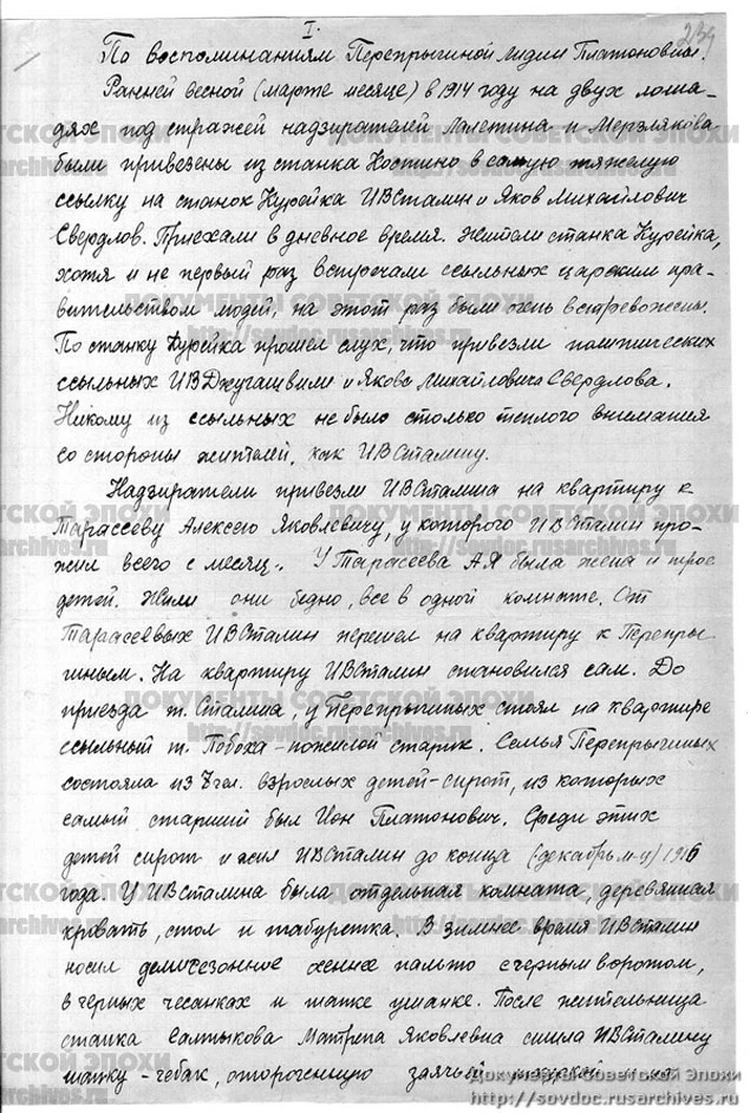 I.
239
По воспоминаниям Перепрыгиной Лидии Платоновны.
Ранней весной (марте месяце) в 1914 году на двух лоша-
дях под стражей надзирателей Лалетина и Мерзлякова
были привезены из станка Костино в самую тяжелую
ссылку на станок Курейка ИВСталин и Яков Михайлович
Свердлов. Приехали в дневное время. Жители станка Курейка,
хотя и не первый раз встречали ссыльных царским пра-
вительством людей, на этот раз были очень встревожены.
По станку Курейка прошел слух, что привезли политических
ссыльных ИВДжугашвили и Якова Михайловича Свердлова.
Никому из ссыльных не было столько теплого внимания
со стороны жителей, как ИВСталину.
Надзиратели привезли ИВСталина на квартиру к
Тарассеву Алексею Яковлевичу, у которого ИВСталин про-
жил всего с месяц. У Тарасеева АЯ была жена и трое
детей. Жили они бедно, все в одной комнате. От
Тарасеевых ИВСталин перешел на квартиру к Перепры-
гиным. На квартиру ИВСталин становился сам. До
приезда т. Сталина, у Перепрыгиных стоял на квартире
ссыльный т. Побоха - пожилой старик. Семья Перепрыгиных
состояла из 7 чел. взрослых детей-сирот, из которых
самый старший был Ион Платонович. Среди этих
детей сирот и жил ИВСталин до конца (декабрь м-ц) 1916
года. У ИВСталина была отдельная комната, деревянная
кровать, стол и табуретка. В зимнее время ИВСталин
носил демисезонное осеннее пальто с черным воротом,
в черных чесанках и шапке ушанке. После жительница
станка Салтыкова Матрена Яковлевна сшила ИВСталину
шапку - чебак, отороченную заячьей
ДОКУМЕНТЫ СОВЕТСКОЙ ЭПОХИ
http://sovdoc.rusarchives.ru
Документы Советской Эпохи
http://sovdoc.rusarchives.ru